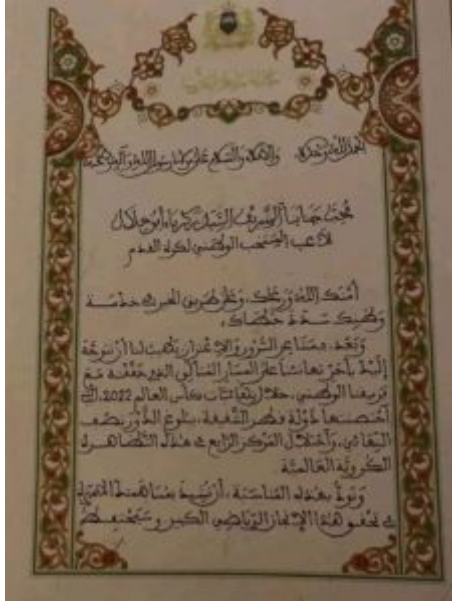 الحمد لله وحده والصلاة والسلام على مولانا رسول الله وآله وصحبه
محب جنابنا الشريف السيد زكرياء أبو خلال
لاعب المنتخب الوطني لكرة القدم
أمنك الله ورعاك، وعلى طريق الخير في خدمة
وطنك سدد خطاك،
وبعد، فمشاعر السرور والاعتزاز يطيب لنا أن نتوجه
إليك بأحر تهانئنا على المسار المتألق الذي حققته مع
فريقنا الوطني، خلال نهائيات كأس العالم 2022، التي
احتضنتها دولة قطر الشقيقة، ببلوغ الدور نصف
النهائي، واحتلال المركز الرابع في هذه التظاهرة
الكروية العالمية
ونود بهذه المناسبة، أن نشيد بمساهمتك
في تحقيق هذا الإنجاز الرياضي الكبير